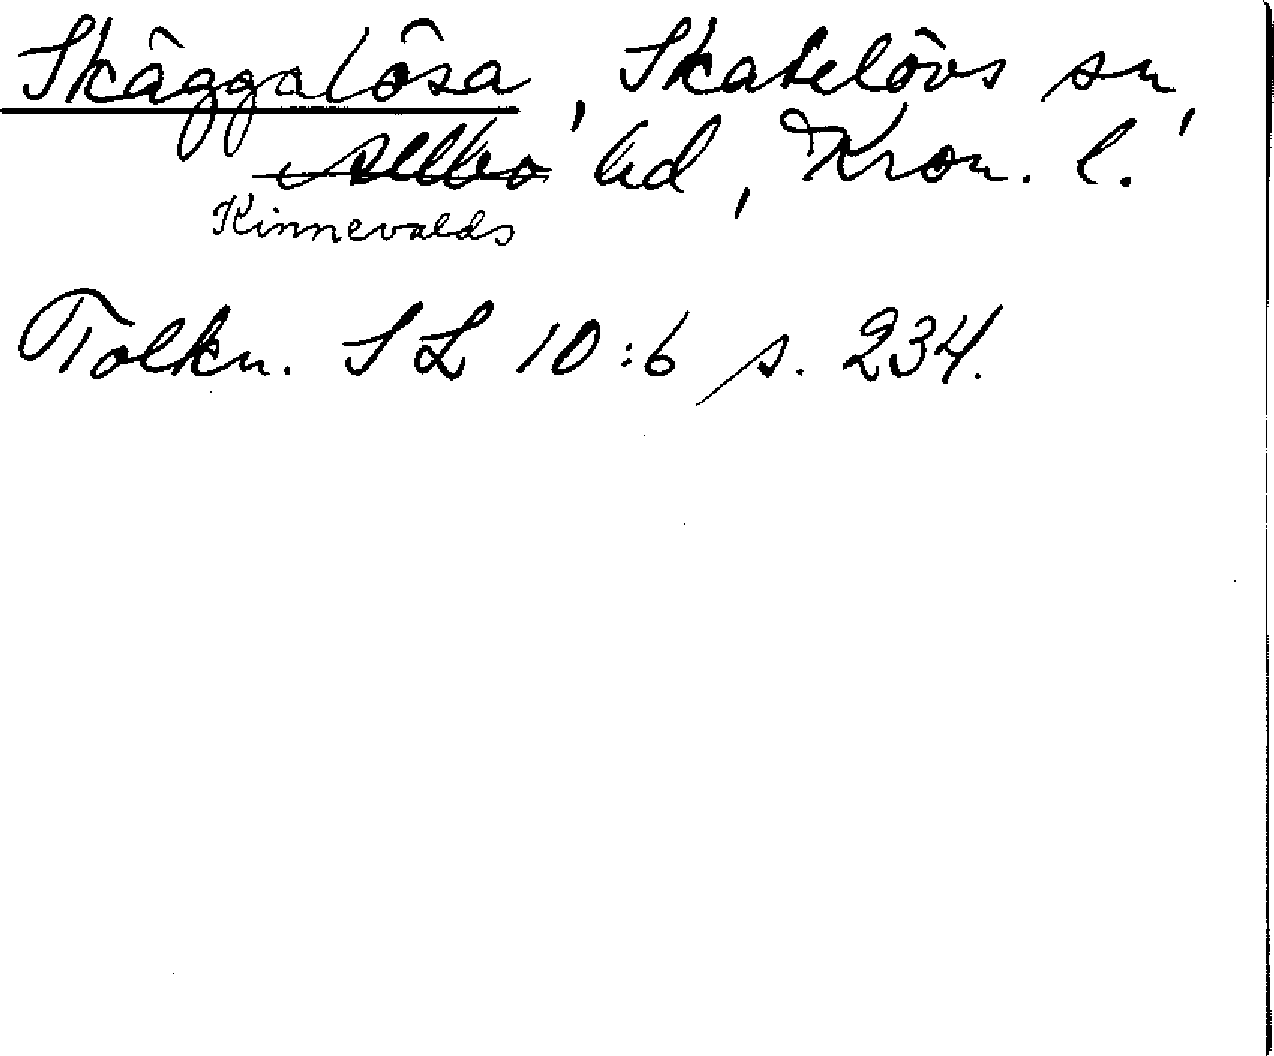 Skäggalösa, Skatelövs sn,
Allbo hd, Kron. l.
Kinnevalds
Tolkn. SL 10:6 s. 234.